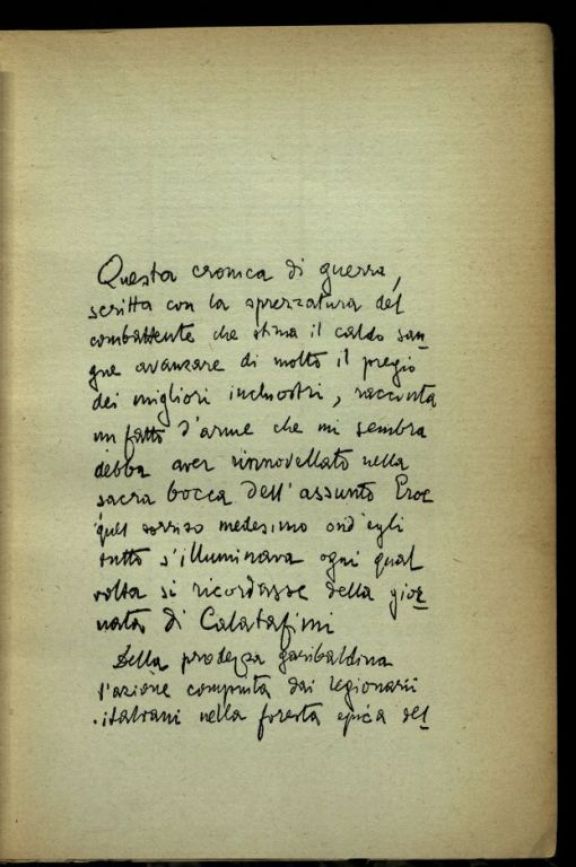 Questa cronica di guerra,
scritta con la sprezzatura del
combattente che stima il caldo san_
gue avanzare di molto il pregio
dei migliori inchiostri, racconta
un fatto d'arme che mi sembra
debba aver rinnovellato nella
sacra bocca dell'assunto Eroe
quel sorriso medesimo ond'egli
tutto s'illuminava ogni qual
volta si ricordasse della gior_
nata di Calatafimi
Della prodezza garibaldina
l'azione compiuta dai legionarii
italiani nella foresta epica del